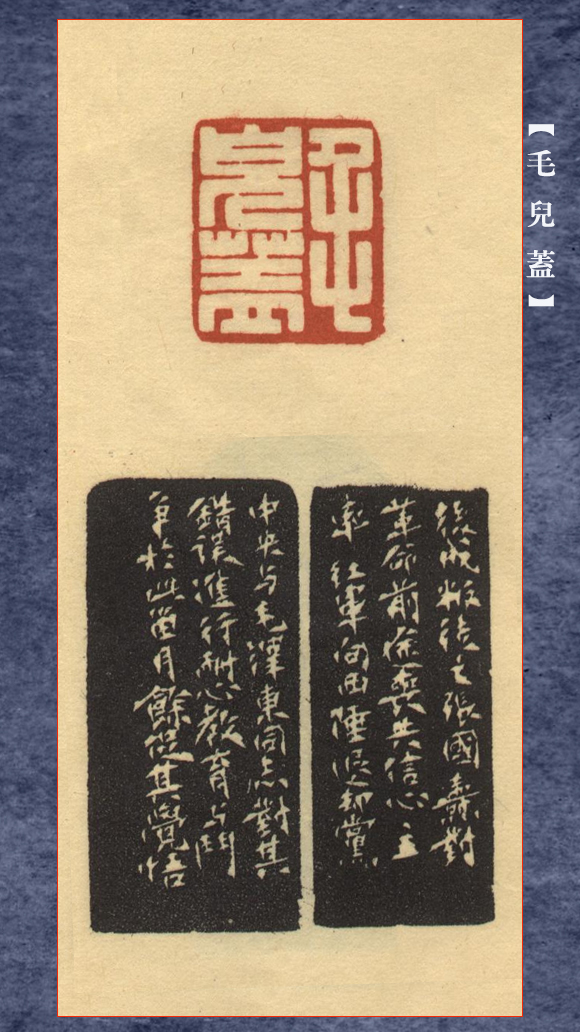 【毛兒蓋】
毛
兒蓋
後成叛徒之張國燾對
革命前途喪失信心主
率紅軍向西陲退却黨
中央与毛澤東同志對其
錯誤進行耐心教育与鬥
争於此留月餘促其覺悟